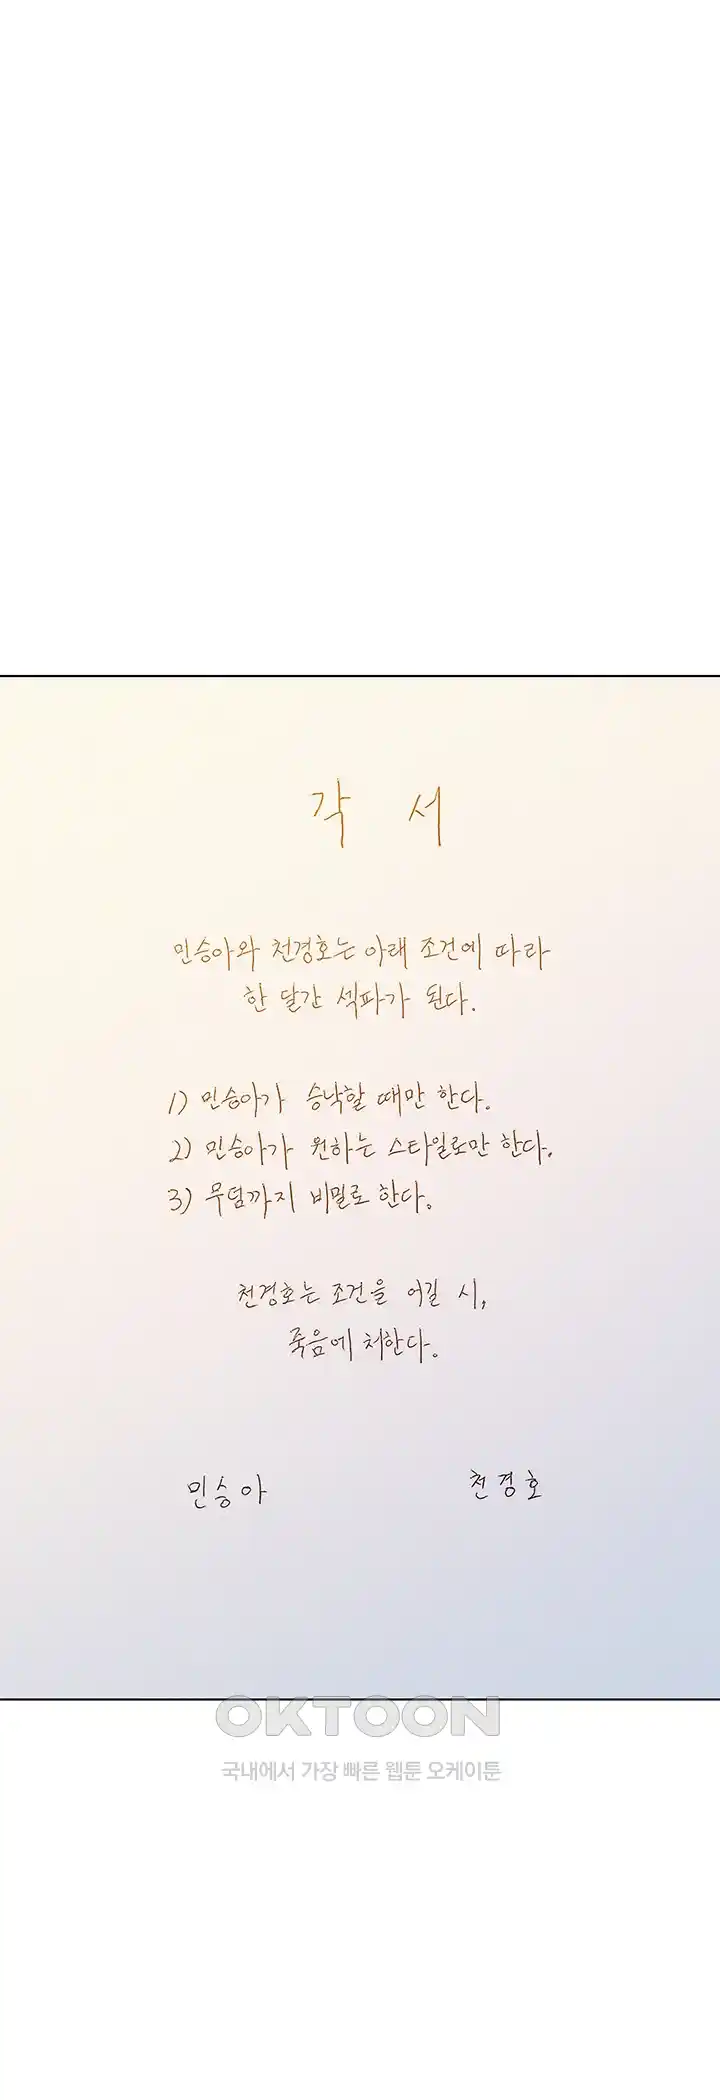 각 서
민승아와 천경호는 아래 조건에 따라
한 달간 섹파가 된다.
1) 민승아가 승낙할 때만 한다.
2) 민승아가 원하는 스타일로만 한다.
3) 무덤까지 비밀로 한다.
천경호는 조건을 어길 시,
죽음에 처한다.
민승아 천경호
OKTOON
국내에서 가장 빠른 웹툰 오케이툰